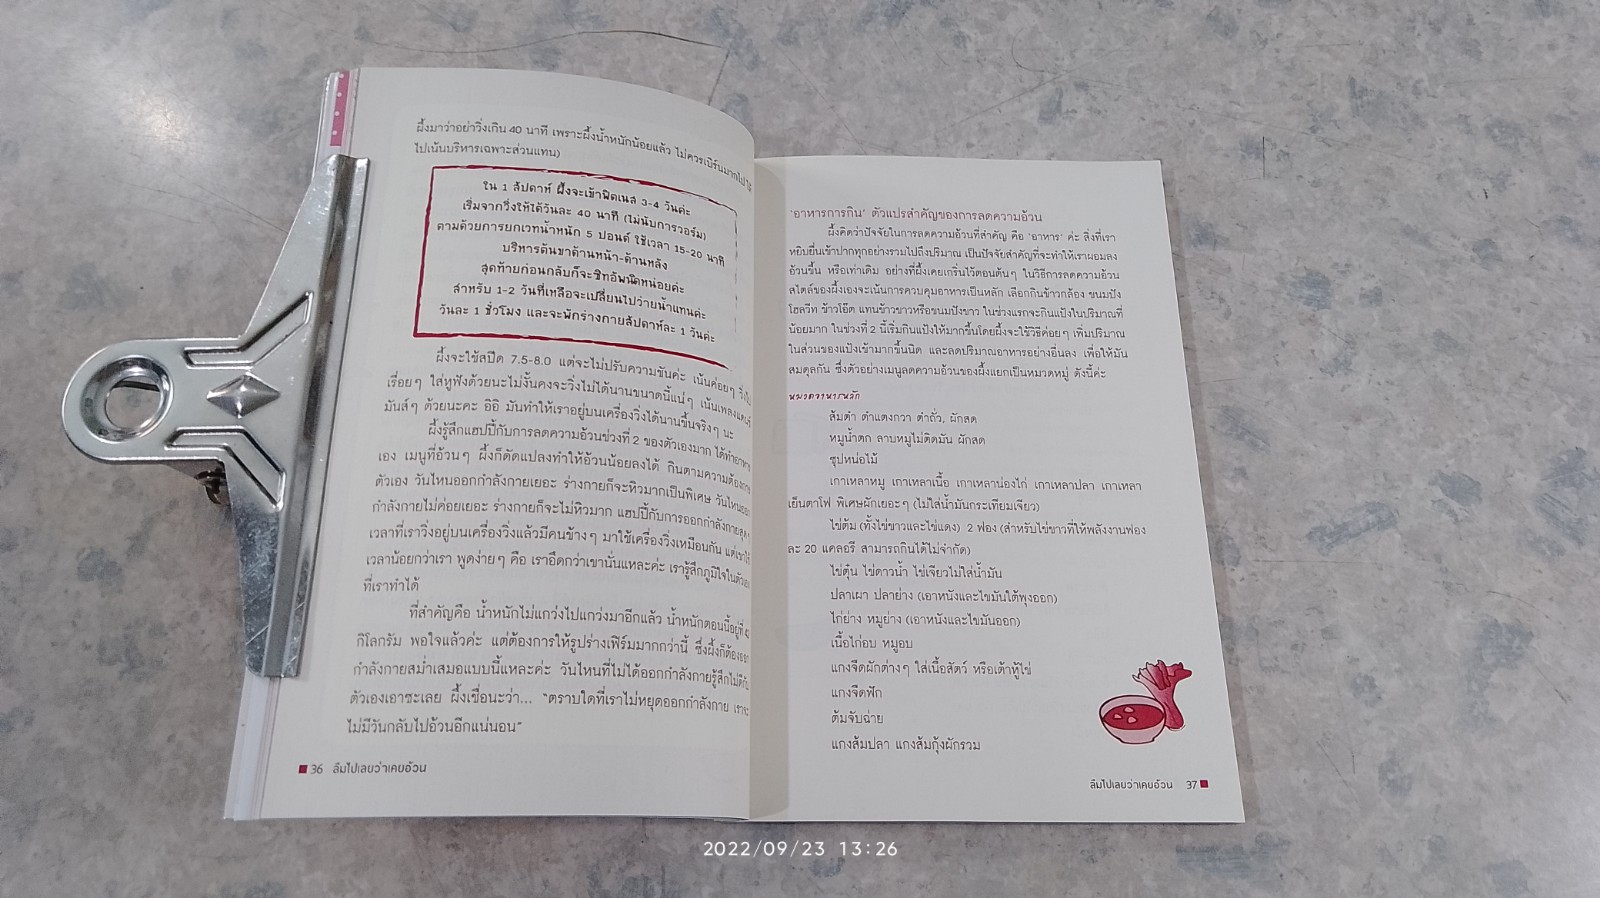 ผึ้งมาว่าอย่าวิ่งเกิน 40 นาที เพราะผึ้งน้ำหนักน้อยแล้ว ไม่ควรเบิร์นมากไป ให้
ไปเน้นบริหารเฉพาะส่วนแทน)
ใน 1 สัปดาห์ ผึ้งจะเข้าฟิตเนส 3-4 วันค่ะ
เริ่มจากวิ่งให้ได้วันละ 40 นาที (ไม่นับการวอร์ม)
ตามด้วยการยกเวทน้ำหนัก 5 ปอนด์ ใช้เวลา 15-20 นาที
บริหารต้นขาด้านหน้า-ด้านหลัง
สุดท้ายก่อนกลับก็จะซิทอัพนิดหน่อยค่ะ
สำหรับ 1-2 วันที่เหลือจะเปลี่ยนไปว่ายน้ำแทนค่ะ
วันละ 1 ชั่วโมง และจะพักร่างกายสัปดาห์ละ 1 วันค่ะ
ผึ้งจะใช้สปีด 7.5-8.0 แต่จะไม่ปรับความชันค่ะ เน้นค่อยๆ วิ่งไป
เรื่อยๆ ใส่หูฟังด้วยนะไม่งั้นคงจะวิ่งไม่ได้นานขนาดนี้แน่ๆ เน้นเพลงแดนซ์
มันส์ๆ ด้วยนะคะ อิอิ มันทำให้เราอยู่บนเครื่องวิ่งได้นานขึ้นจริงๆ นะ
ผึ้งรู้สึกแฮปปี้กับการลดความอ้วนช่วงที่ 2 ของตัวเองมาก ได้ทำอาหาร
เอง เมนูที่อ้วนๆ ผึ้งก็ดัดแปลงทำให้อ้วนน้อยลงได้ กินตามความต้องการ
ตัวเอง วันไหนออกกำลังกายเยอะ ร่างกายก็จะหิวมากเป็นพิเศษ วันไหนออก
กำลังกายไม่ค่อยเยอะ ร่างกายก็จะไม่หิวมาก แฮปปี้กับการออกกำลังกายสุดๆ
เวลาที่เราวิ่งอยู่บนเครื่องวิ่งแล้วมีคนข้างๆ มาใช้เครื่องวิ่งเหมือนกัน แต่เขาใช้
เวลาน้อยกว่าเรา พูดง่ายๆ คือ เราอึดกว่าเขานั่นแหละค่ะ เรารู้สึกภูมิใจในตัวเอง
ที่เราทำได้
ที่สำคัญคือ น้ำหนักไม่แกว่งไปแกว่งมาอีกแล้ว น้ำหนักตอนนี้อยู่ที่
กิโลกรัม พอใจแล้วค่ะ แต่ต้องการให้รูปร่างเฟิร์มมากกว่านี้ ซึ่งผึ้งก็ต้องออก
กำลังกายสม่ำเสมอแบบนี้แหละค่ะ วันไหนที่ไม่ได้ออกกำลังกายรู้สึกไม่ดีกับ
ตัวเองเอาซะเลย ผึ้งเชื่อนะว่า... “ตราบใดที่เราไม่หยุดออกกำลังกาย เราจะ
ไม่มีวันกลับไปอ้วนอีกแน่นอน”
36 ลืมไปเลยว่าเคยอ้วน
‘อาหารการกิน’ ตัวแปรสำคัญของการลดความอ้วน
ผึ้งคิดว่าปัจจัยในการลดความอ้วนที่สำคัญ คือ ‘อาหาร’ ค่ะ สิ่งที่เรา
หยิบยื่นเข้าปากทุกอย่างรวมไปถึงปริมาณ เป็นปัจจัยสำคัญที่จะทำให้เราผอมลง
อ้วนขึ้น หรือเท่าเดิม อย่างที่ผึ้งเคยเกริ่นไว้ตอนต้นๆ ในวิธีการลดความอ้วน
สไตล์ของผึ้งเองจะเน้นการควบคุมอาหารเป็นหลัก เลือกกินข้าวกล้อง ขนมปัง
โฮลวีท ข้าวโอ๊ต แทนข้าวขาวหรือขนมปังขาว ในช่วงแรกจะกินแป้งในปริมาณที่
น้อยมาก ในช่วงที่ 2 นี้เริ่มกินแป้งให้มากขึ้นโดยผึ้งจะใช้วิธีค่อยๆ เพิ่มปริมาณ
ในส่วนของแป้งเข้ามากขึ้นนิด และลดปริมาณอาหารอย่างอื่นลง เพื่อให้มัน
สมดุลกัน ซึ่งตัวอย่างเมนูลดความอ้วนของผึ้งแยกเป็นหมวดหมู่ ดังนี้ค่ะ
หมวดอาหารหลัก
ส้มตำ ตำแตงกวา ตำถั่ว, ผักสด
หมูน้ำตก ลาบหมูไม่ติดมัน ผักสด
ซุปหน่อไม้
เกาเหลาหมู เกาเหลาเนื้อ เกาเหลาน่องไก่ เกาเหลาปลา เกาเหลา
เย็นตาโฟ พิเศษผักเยอะๆ (ไม่ใส่น้ำมันกระเทียมเจียว)
ไข่ต้ม (ทั้งไข่ขาวและไข่แดง) 2 ฟอง (สำหรับไข่ขาวที่ให้พลังงานฟอง
ละ 20 แคลอรี สามารถกินได้ไม่จำกัด)
ไข่ตุ๋น ไข่ดาวน้ำ ไข่เจียวไม่ใส่น้ำมัน
ปลาเผา ปลาย่าง (เอาหนังและไขมันใต้พุงออก)
ไก่ย่าง หมูย่าง (เอาหนังและไขมันออก)
เนื้อไก่อบ หมูอบ
แกงจืดผักต่างๆ ใส่เนื้อสัตว์ หรือเต้าหู้ไข่
แกงจืดฟัก
ต้มจับฉ่าย
แกงส้มปลา แกงส้มกุ้งผักรวม
ลืมไปเลยว่าเคยอ้วน 37
2022/09/23 13:26